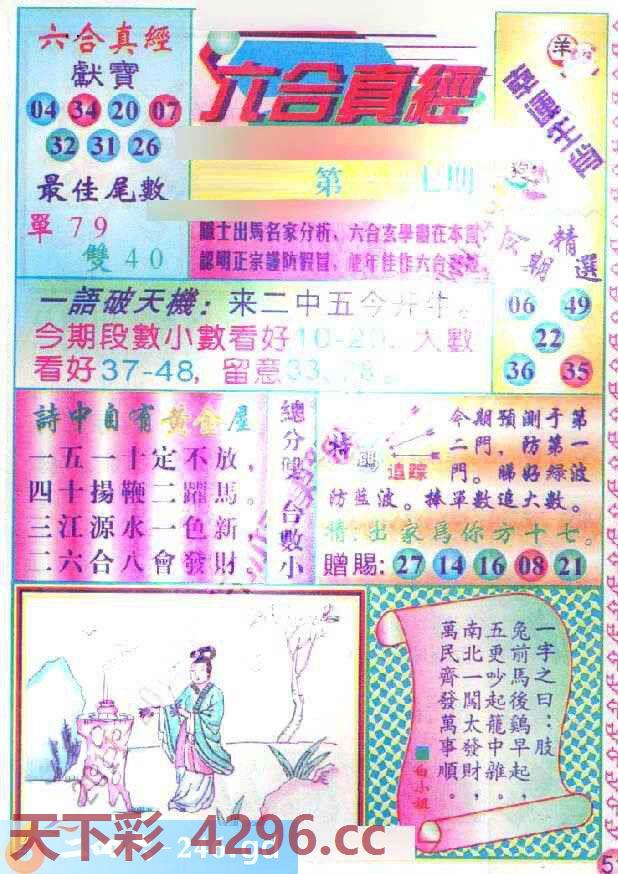 六合真經
獻寶
04 34 20 07
32 31 26
最佳尾數
單 79
雙 40
六合真經
羊
第 七期
出馬名家分析，六合玄學盡在本
認明正宗謹防假冒，
期 精選
06 49
22
36 35
一語破天機：来二中五今开牛。
今期段數小數看好10-20、大數
看好37-48，留意33、
詩中自有黃金屋
一五一十定不放，
四十揚鞭二躍馬。
三江源水一色新，
二六合八會發財。
總分 合數小
特碼追踪
今期預測于第
二門，防第一
門。睇好綠波
防蓝波。捧單數追大數。
猜：出家爲你方十七。
贈賜：27 14 16 08 21
一字之曰：肢
兔前馬後鷄早起，
五更吵起龍中雜。
南北一闖太發財，
萬民齊發萬事順。
白小姐
天下彩 4296.cc
246.gd